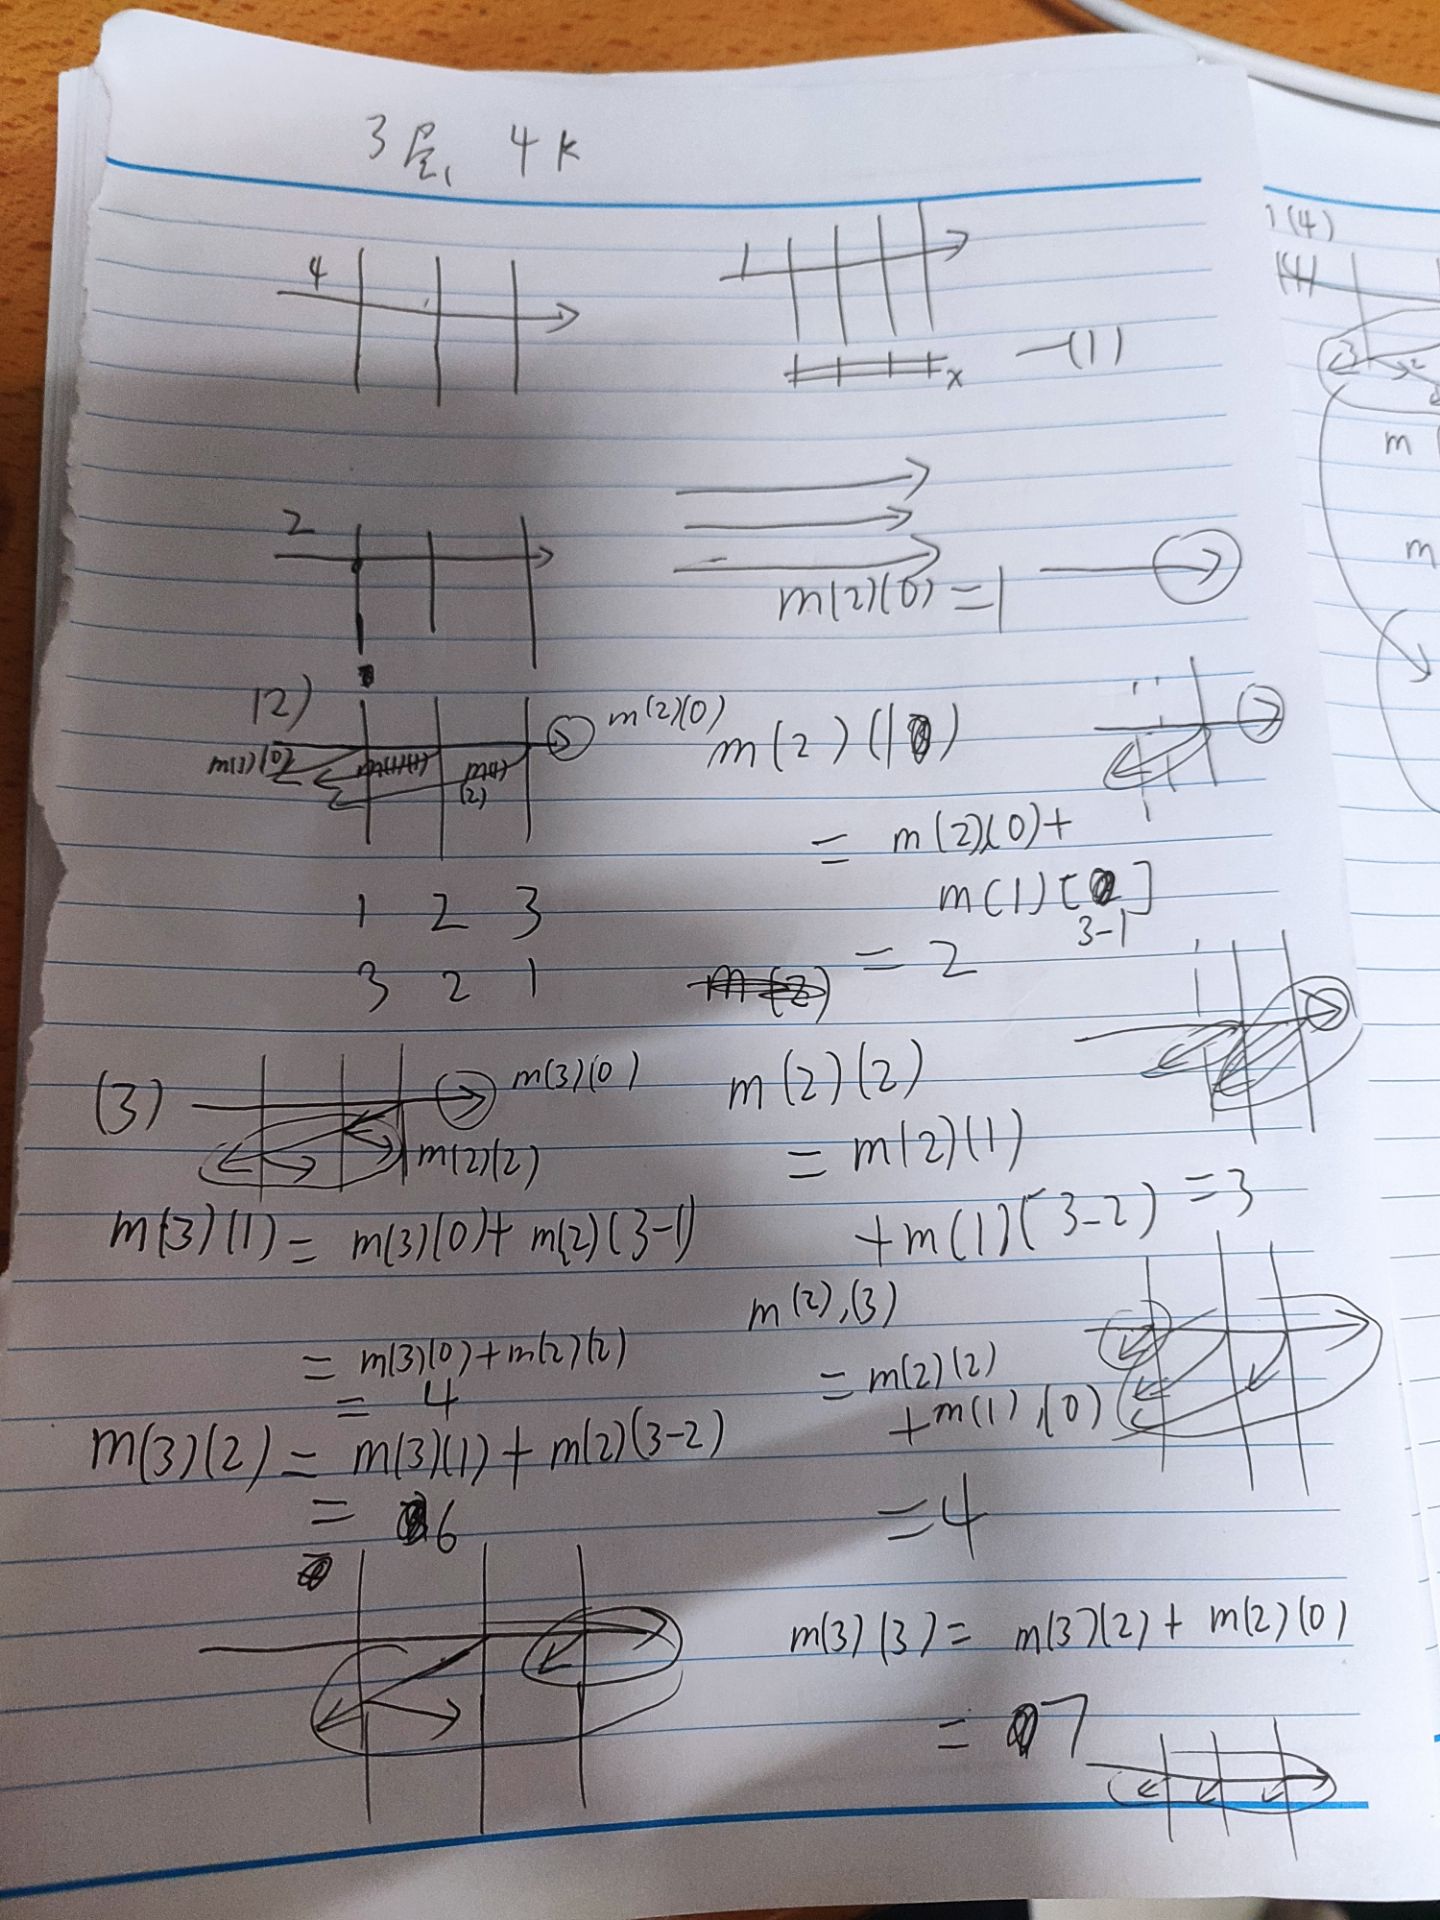 3层, 4k
4
x
一(1)
2
m(2)(0)=1
(2)
m(2)(0)
m(1)(0)
m(1)(1)
m(1)
(2)
m(2)(1)
= m(2)(0)+
m(1)[2]
3-1
= 2
1 2 3
3 2 1
(3)
m(3)(0)
m(2)(2)
m(3)(1) = m(3)(0)+m(2)(3-1)
= m(3)(0)+m(2)(2)
= 4
m(3)(2) = m(3)(1)+m(2)(3-2)
= 6
m(2)(2)
= m(2)(1)
+m(1)(3-2) =3
m(2),(3)
= m(2)(2)
+m(1),(0)
=4
m(3)(3)= m(3)(2)+m(2)(0)
= 7
1(4)
m
m